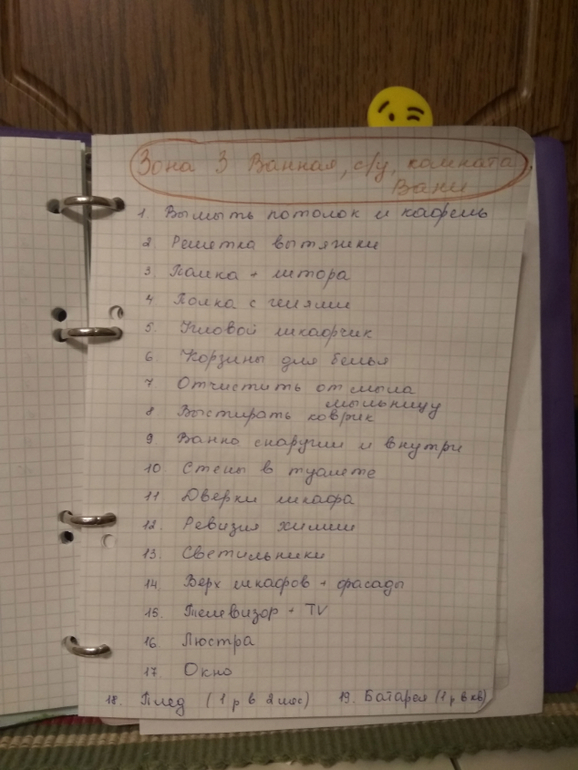 Зона 3 Ванная, с/у, комната
Вани
1. Вымыть потолок и кафель
2. Решетка вытяжки
3 Палка + штора
4 Полка с гелями
5. Угловой шкафчик
6 Корзины для белья
7 Отчистить от мыла
мыльницу
8 Выстирать коврик
9 Ванна снаружи и внутри
10 Стены в туалете
11 Дверки шкафа
12. Ревизия химии
13. Светильники
14 Верх шкафов + фасады
15. Телевизор + TV
16 Люстра
17. Окно
18. Плед (1 р в 2 мес) 19. Батарея (1 р в кв)